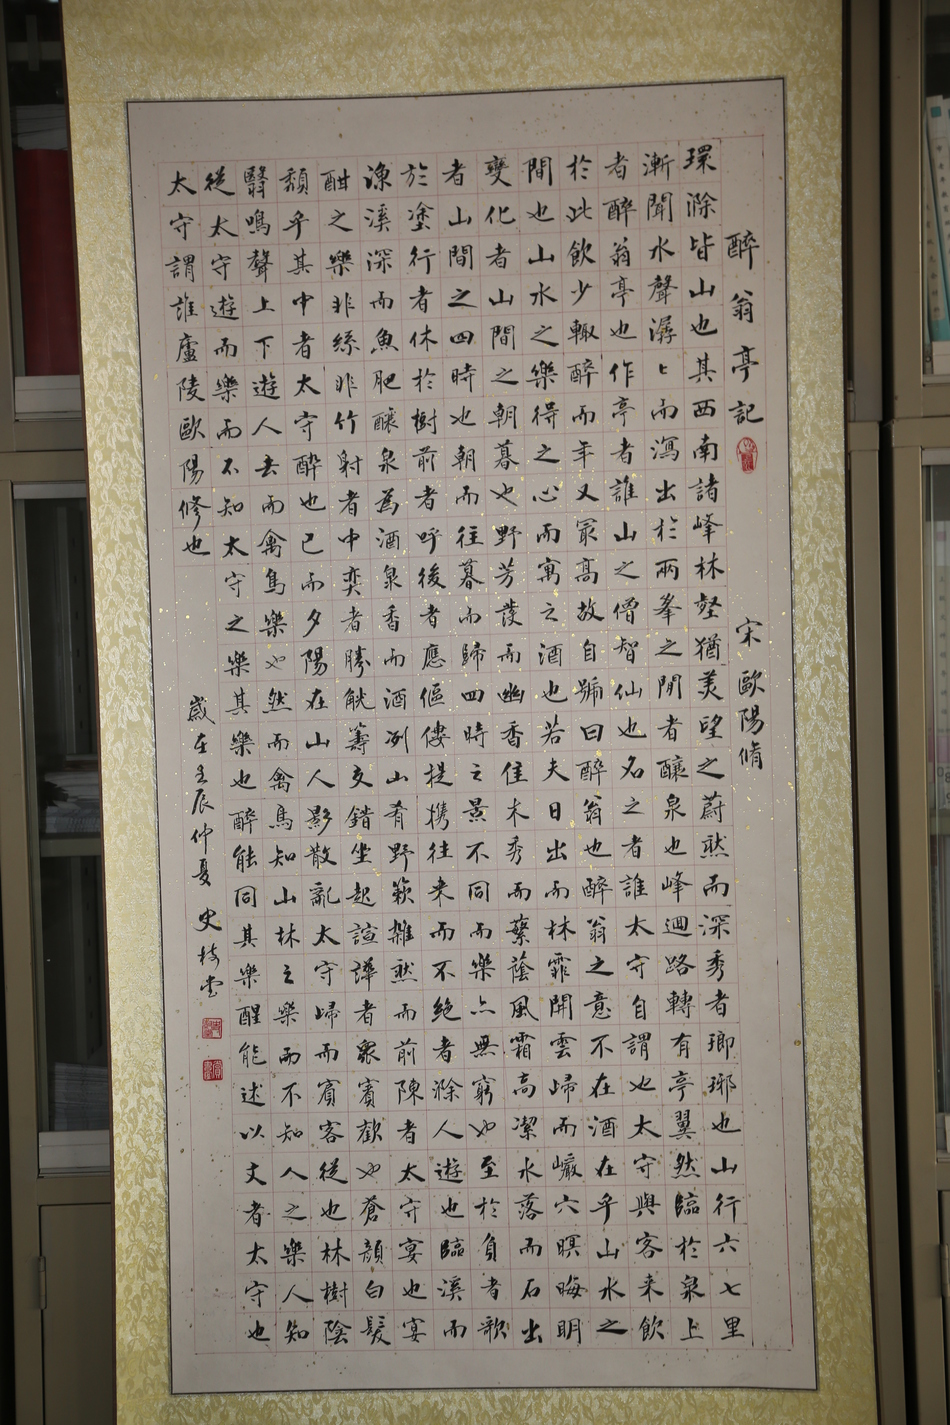 醉翁亭記 宋 歐陽脩
環滁皆山也其西南諸峰林壑猶美望之蔚然而深秀者瑯琊也山行六七里
漸聞水聲潺々而瀉出於兩峯之間者釀泉也峰迴路轉有亭翼然臨於泉上
者醉翁亭也作亭者誰山之僧智仙也名之者誰太守自謂也太守與客来飲
於此飲少輙醉而年又最高故自號曰醉翁也醉翁之意不在酒在乎山水之
間也山水之樂得之心而寓之酒也若夫日出而林霏開雲歸而巖穴暝晦明
變化者山間之朝暮也野芳發而幽香佳木秀而繁蔭風霜高潔水落而石出
者山間之四時也朝而往暮而歸四時之景不同而樂亦無窮也至於負者歌
於塗行者休於樹前者呼後者應傴僂提携往来而不絕者滁人遊也臨溪而
漁溪深而魚肥釀泉為酒泉香而酒冽山肴野蔌雜然而前陳者太守宴也宴
酣之樂非絲非竹射者中奕者勝觥籌交錯坐起諠譁者衆賓歡也蒼顏白髮
頹乎其中者太守醉也已而夕陽在山人影散亂太守歸而賓客從也林樹陰
翳鳴聲上下遊人去而禽鳥樂也然而禽鳥知山林之樂而不知人之樂人知
從太守遊而樂而不知太守之樂其樂也醉能同其樂醒能述以文者太守也
太守謂誰廬陵歐陽修也
歲在壬辰仲夏 史